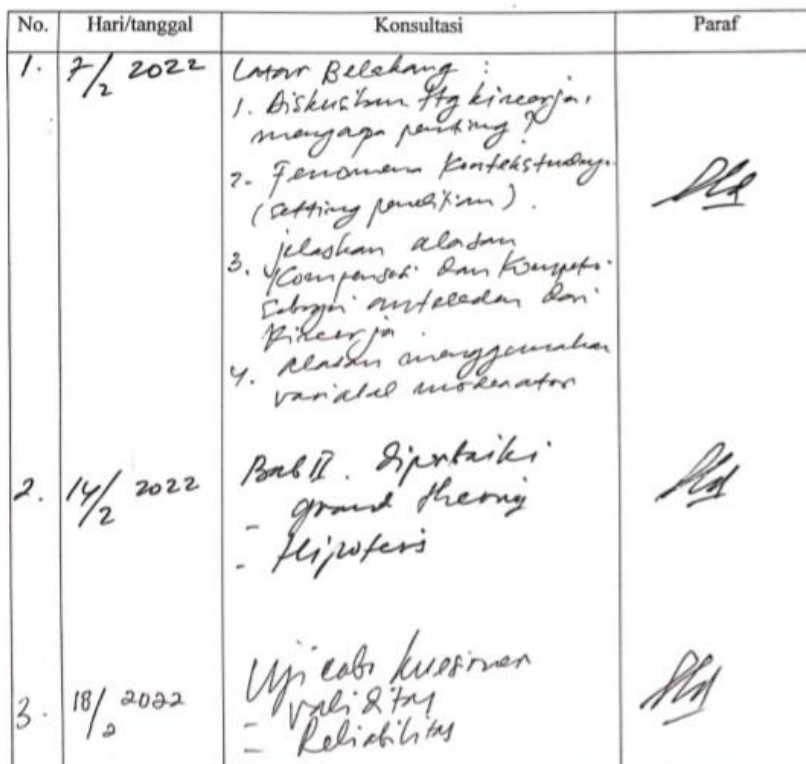 No. Hari/tanggal Konsultasi Paraf
1. 7/2 2022 Latar Belakang :
1. Diskusikan ttg kinerja,
mengapa penting ?
2. Fenomena kontekstualnya
(setting penelitian).
3. jelaskan alasan
kompensasi dan kompetensi
sebagai anteseden dari
kinerja
4. alasan menggunakan
variabel moderator
2. 14/2 2022 Bab II. diperbaiki
- grand theory
- Hipotesis
3. 18/2 2022 Uji coba kuesioner
- validitas
- Reliabilitas